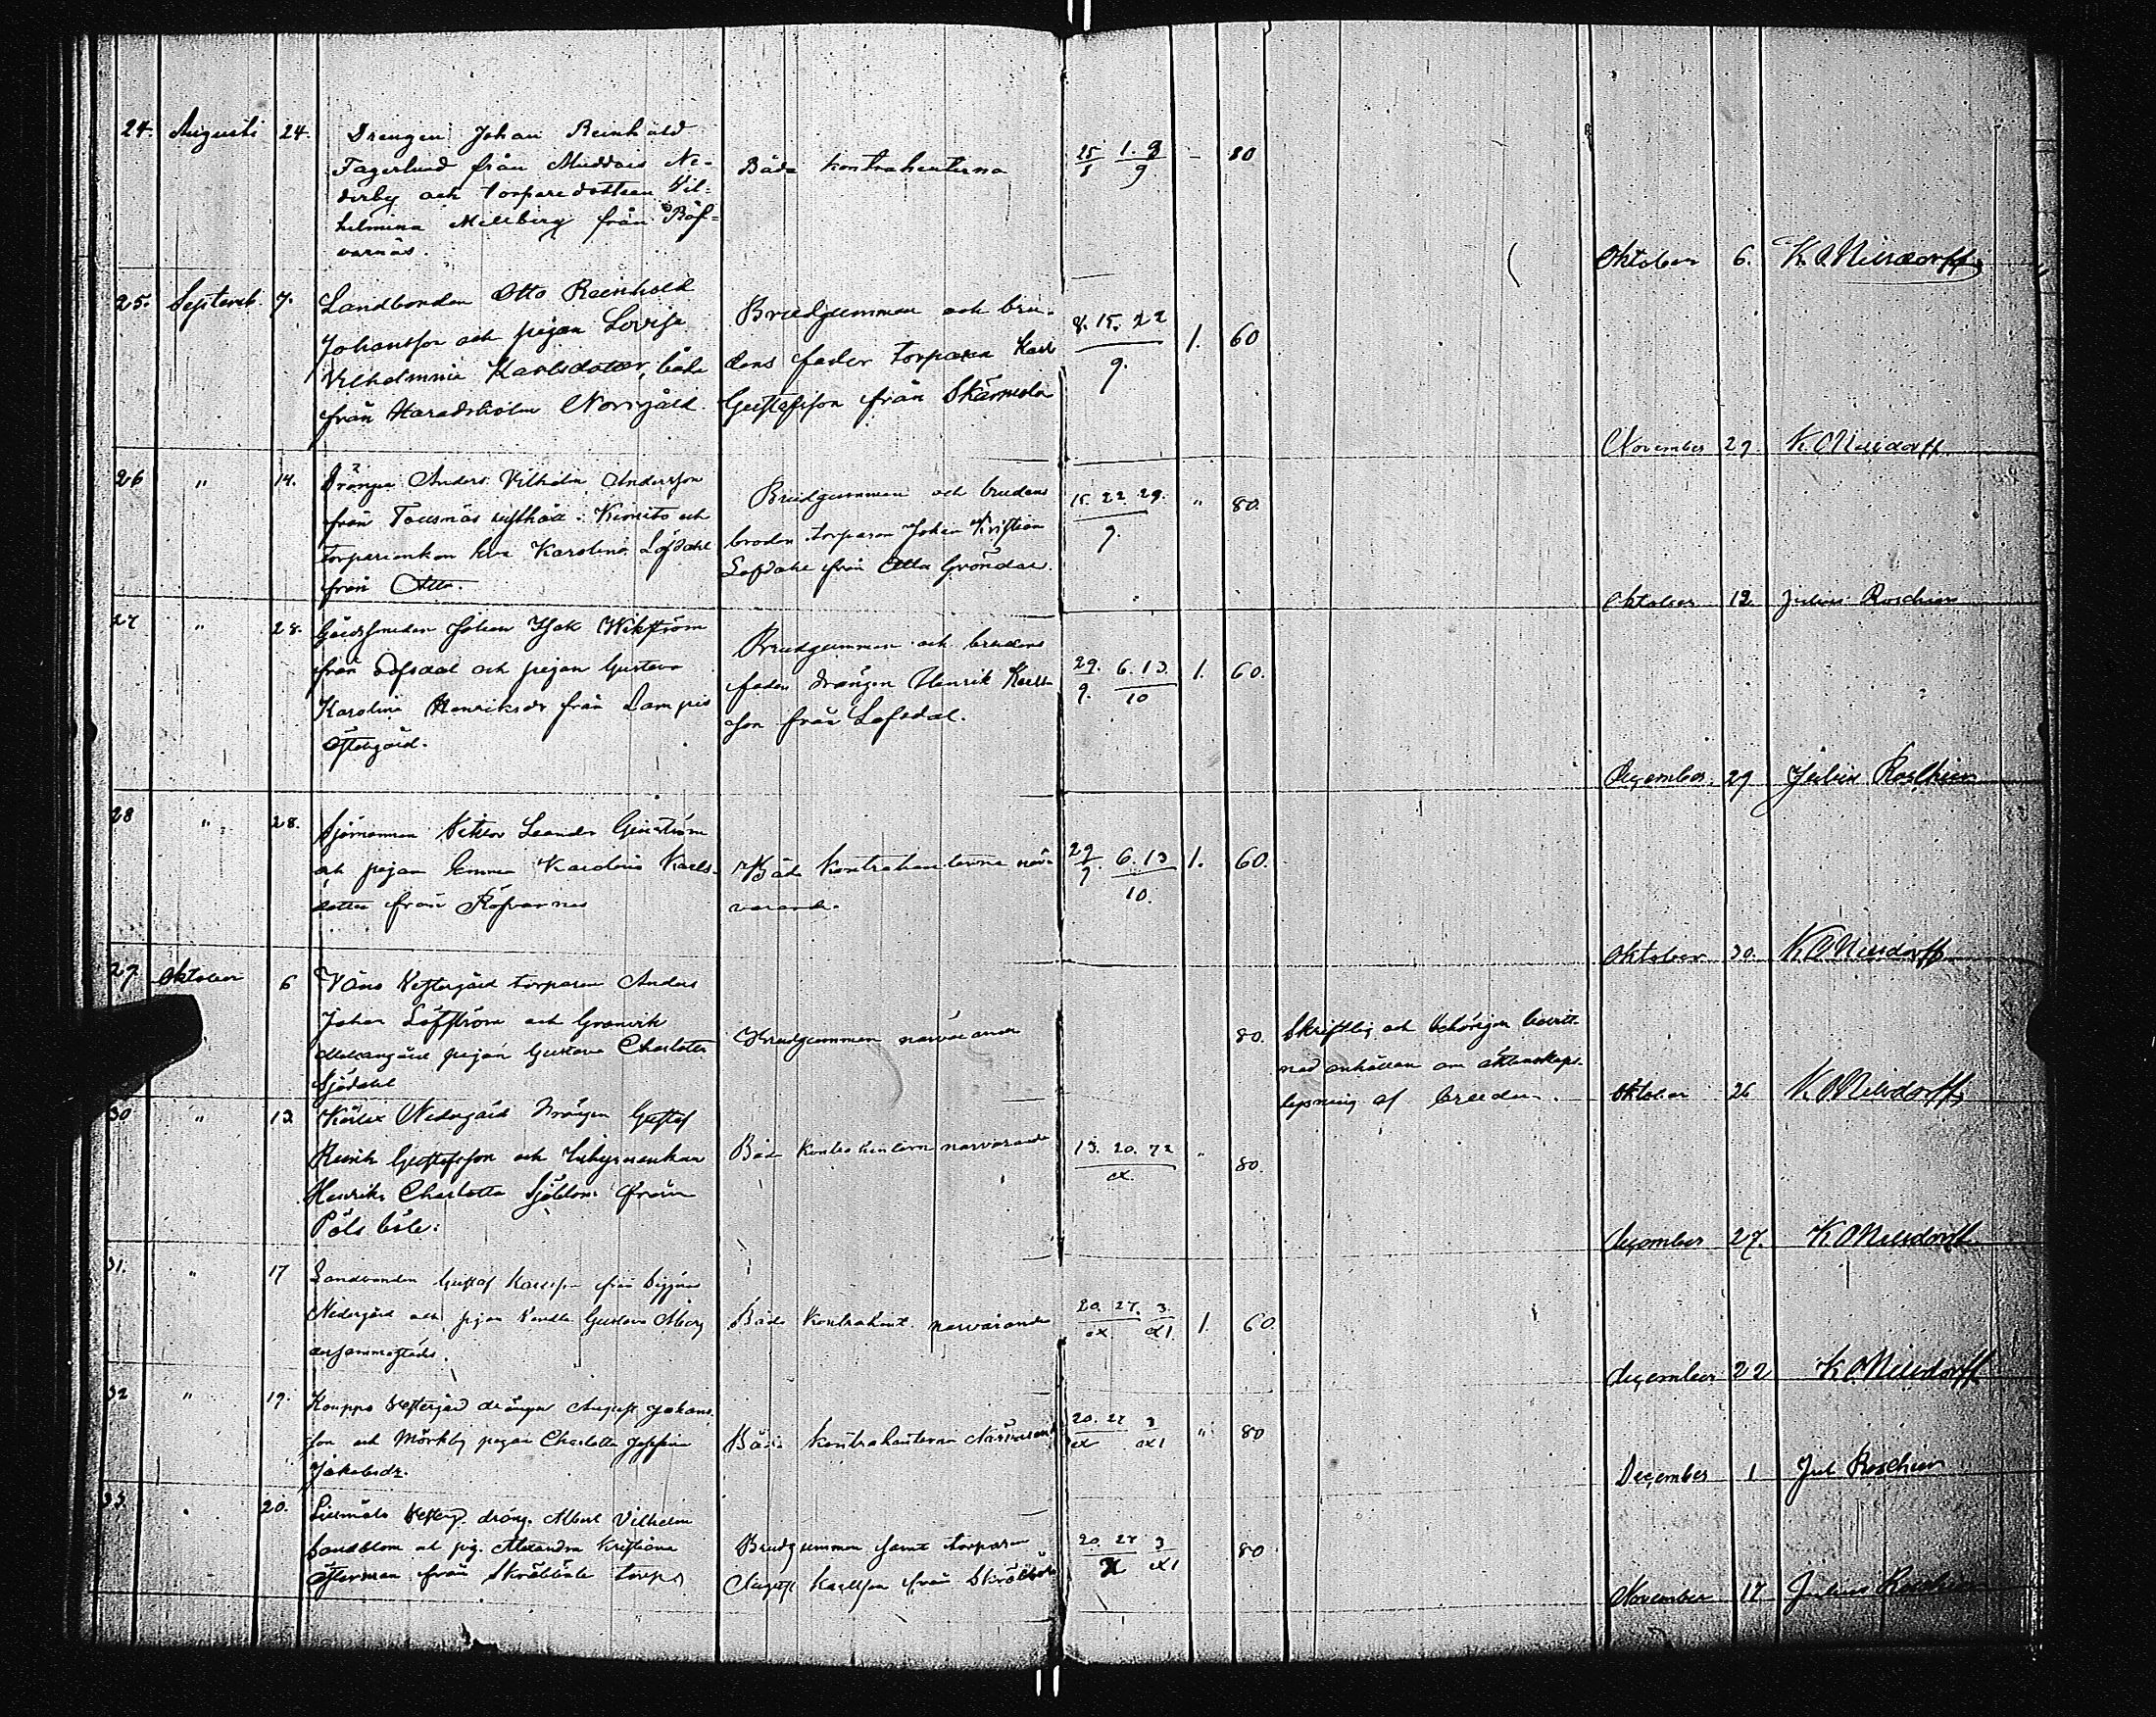 24. Augusti 24. Drengen Johan Reinhold
Fagerlund från Muddais Ne-
derby och torparedottren Vil-
helmina Millberg från Böf-
varnäs.
Båda kontrahenterna
25/8 1. 8/9 - 80
Oktober 6. K O Nilsdorff
25. Septemb. 7. Landbonden Otto Reinhold
Johansson och pigan Lovisa
Vilhelmina Karlsdotter, båda
från Haradsholm Norrgård.
Brudgummen och bru-
dens fader torparen Karl
Gustafsson från Skärmola
8. 15. 22/9. 1. 60
November 29. K. O Nilsdorff.
26 " 14. Drängen Anders Vilhelm Andersson
från Kimito och
torparienkan Karolina Löfdahl
från Attu.
Brudgummen och brudens
broder torparen Johan Kristian
Löfdahl från Attu Gröndal.
15. 22. 29./9. " 80.
Oktober 12 Julius Roschier
27 " 28. Johan Isak Wikström
från Lofsdal och pigan Gustava
Karolina Henriksdr från Lampis
Östergård.
Brudgummen och brudens
fader drängen Henrik Karls-
son från Lofsdal.
29./9. 6. 13./10 1. 60.
December 29 Julius Roschier
28 " 28. Sjömannen Viktor Leander
och pigan Emma Karolina Karls-
dotter från Böfvarnäs
Båda kontrahenterna när-
varande.
29/9 6. 13/10. 1. 60.
Oktober 30. K O Nilsdorff
29. Oktober 6 Vestergård torparen Anders
Johan Löfström och Granvik
Mellangård pigan Gustava Charlotta
Sjödahl
Brudgummen närvarande
80. Skriftlig och behörigen bevitt-
nad anhållan om äktenskaps-
lysning af bruden.
Oktober 26 K O Nilsdorff
30 " 13. Nedergård drängen Gustaf
Henrik Gustafsson och
Henrika Charlotta Sjöblom från
Pålsböle.
Båda kontrahenterna närvarande
13. 20. 72/X. " 80.
December 27. K O Nilsdorff
31. " 17 Landbonden Gustaf Karlsson från
Nedergård och pigan Vendla Gustava Åberg
dersammastädes.
Båda kontrahent. närvarande
20. 27./X 3./XI 1. 60
December 22 K O Nilsdorff
32 " 19. Kouppo Vestergård drängen August Johans-
son och Mörkby pigan Charlotta Josefina
Jakobsdr.
Båda kontrahenterna närvarand
20. 27/X 3/XI " 80
December 1 Jul Roschier
33. " 20. Vesterg. dräng. Albert Vilhelm
Sandblom och pig. Alexandra Kristiana
Österman från Skräbböle torp
Brudgummen samt torparen
August Karlsson från Skräbböle
20. 27/X 3/XI 80
November 17 Julius Roschier